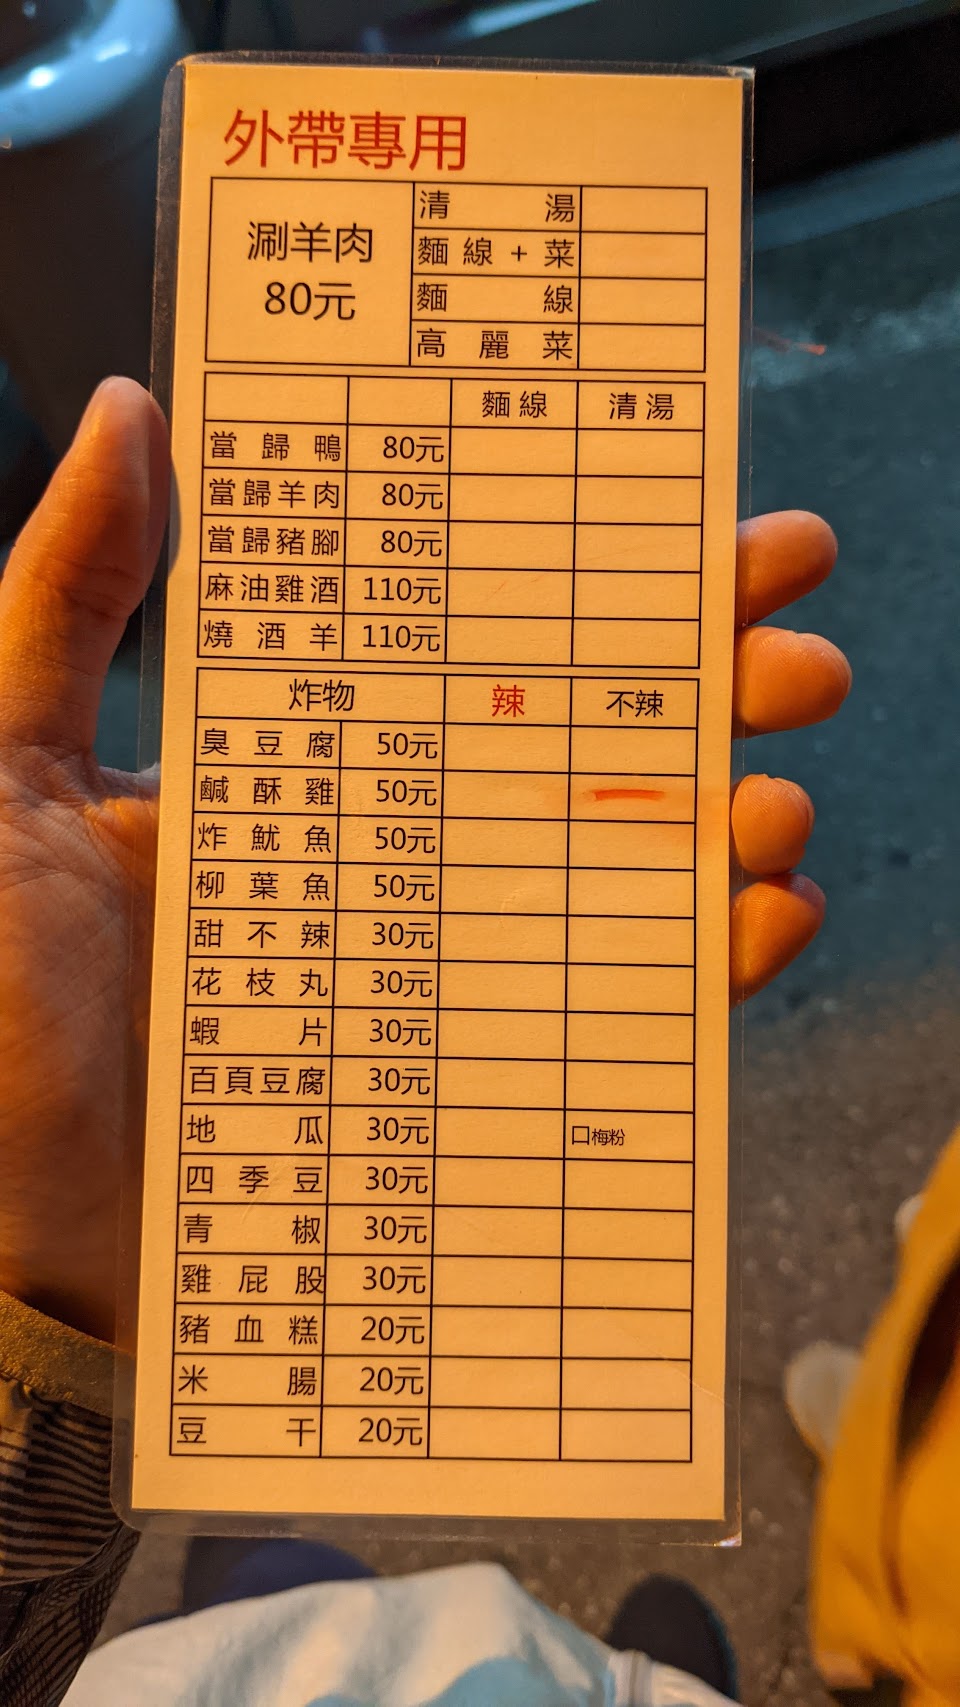 外帶專用
涮羊肉
80元
清湯
麵線+菜
麵線
高麗菜
麵線 清湯
當歸鴨 80元
當歸羊肉 80元
當歸豬腳 80元
麻油雞酒 110元
燒酒羊 110元
炸物 辣 不辣
臭豆腐 50元
鹹酥雞 50元
炸魷魚 50元
柳葉魚 50元
甜不辣 30元
花枝丸 30元
蝦片 30元
百頁豆腐 30元
地瓜 30元 口梅粉
四季豆 30元
青椒 30元
雞屁股 30元
豬血糕 20元
米腸 20元
豆干 20元